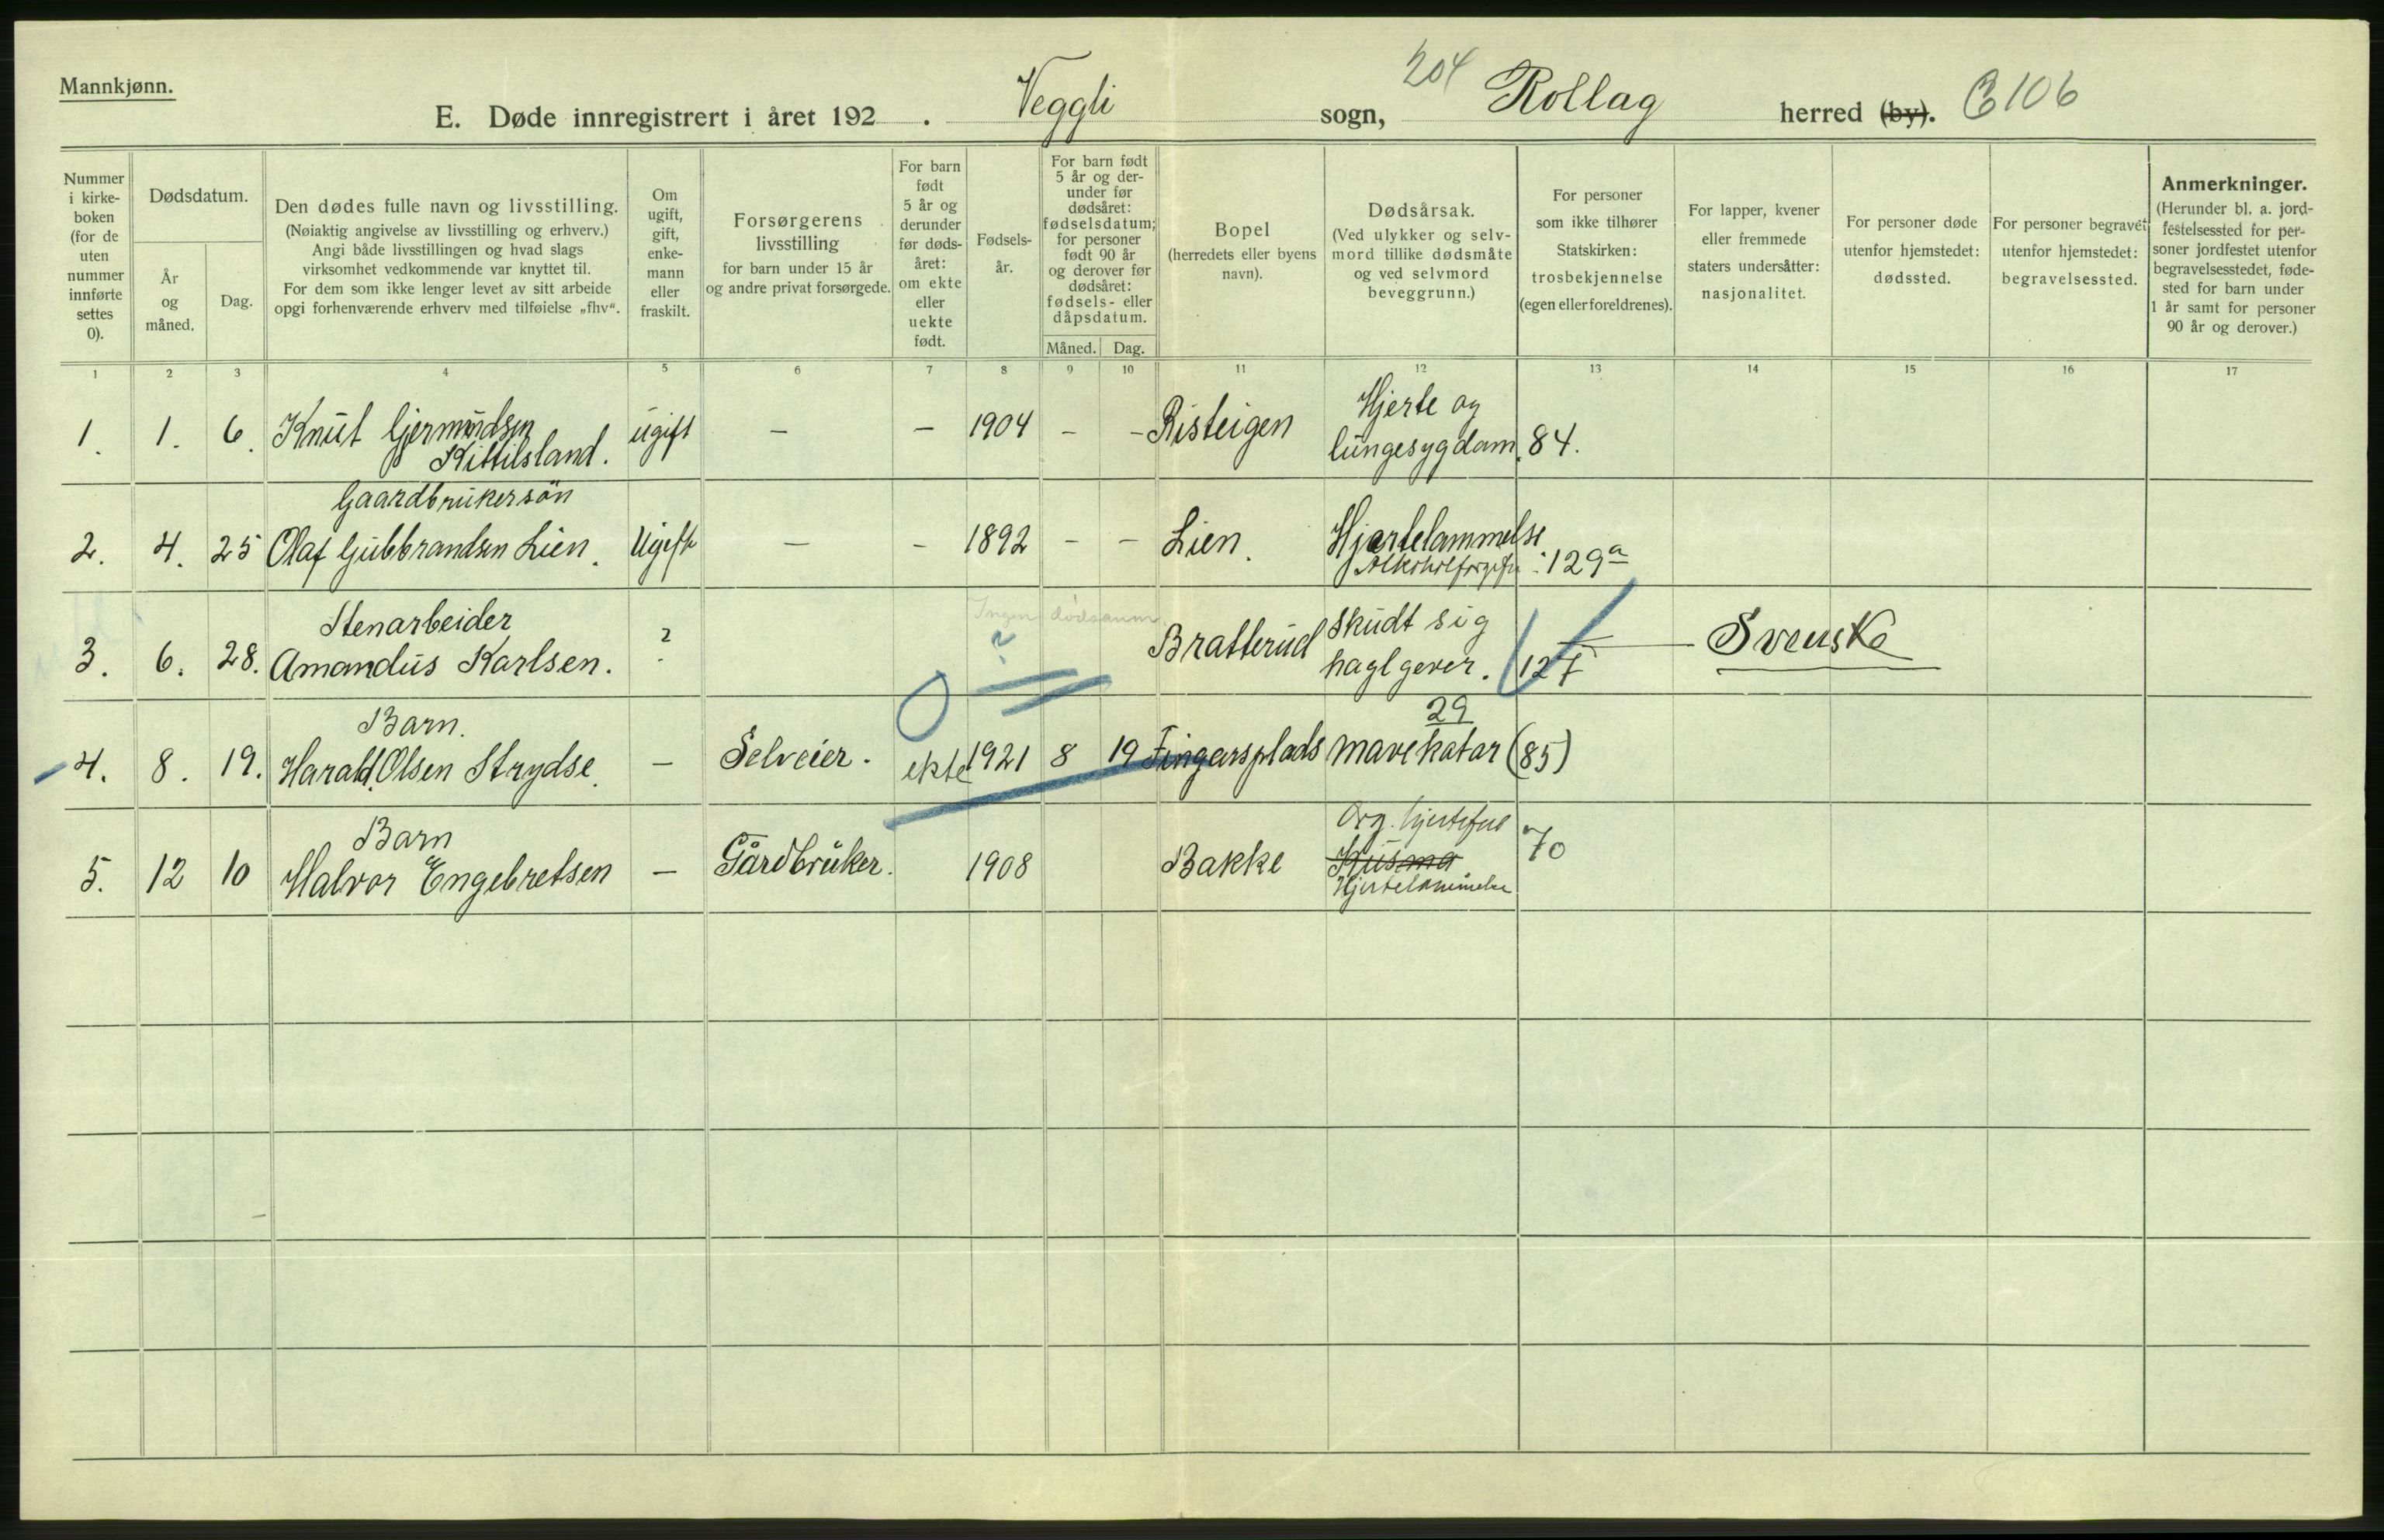 Mannkjønn.
E. Døde innregistrert i året 192 . Veggli sogn, 204 Rollag herred (by). C 106
Nummer i kirke-boken (for de uten nummer innførte settes 0).
Dødsdatum.
År og måned.
Dag.
Den dødes fulle navn og livsstilling.
(Nøiaktig angivelse av livsstilling og erhverv.)
Angi både livsstillingen og hvad slags
virksomhet vedkommende var knyttet til.
For dem som ikke lenger levet av sitt arbeide
opgi forhenværende erhverv med tilføielse „fhv“.
Om ugift, gift, enke-mann eller fraskilt.
Forsørgerens
livsstilling
for barn under 15 år
og andre privat forsørgede.
For barn født 5 år og derunder før døds-året: om ekte eller uekte født.
Fødsels-år.
For barn født 5 år og der-under før dødsåret: fødselsdatum; for personer født 90 år og derover før dødsåret: fødsels- eller dåpsdatum.
Måned. Dag.
Bopel
(herredets eller byens
navn).
Dødsårsak.
(Ved ulykker og selv-
mord tillike dødsmåte
og ved selvmord
beveggrunn.)
For personer
som ikke tilhører
Statskirken:
trosbekjennelse
(egen eller foreldrenes).
For lapper, kvener
eller fremmede
staters undersåtter:
nasjonalitet.
For personer døde
utenfor hjemstedet:
dødssted.
For personer begravet
utenfor hjemstedet:
begravelsessted.
Anmerkninger.
(Herunder bl. a. jord-
festelsessted for per-
soner jordfestet utenfor
begravelsesstedet, føde-
sted for barn under
1 år samt for personer
90 år og derover.)
1 2 3 4 5 6 7 8 9 10 11 12 13 14 15 16 17
Hjerte og
1. 1. 6. Knut Gjermundsen ugift – – 1904 – – Risteigen lungesygdam. 84.
Kittilsland.
Gaardbrukersøn
2. 4. 25 Olaf Gubbrandsen Lien. Ugift – – 1892 – – Lien. Hjertelammelse
: 129a
Ingen
Stenarbeider ? skudt sig
3. 6. 28. Amandus Karlsen. ? Bratterud haglgever. 127 Svensk
Barn. 29
4. 8. 19. Harald Olsen Strydse. – Selveier. ekte 1921 8 19 Fingarsplads mavekatar (85)
Barn Org. hjertefeil
5. 12 10 Halvor Engebretsen – Gårdbruker. 1908 Bakke Krusma 70
Hjertelammelse